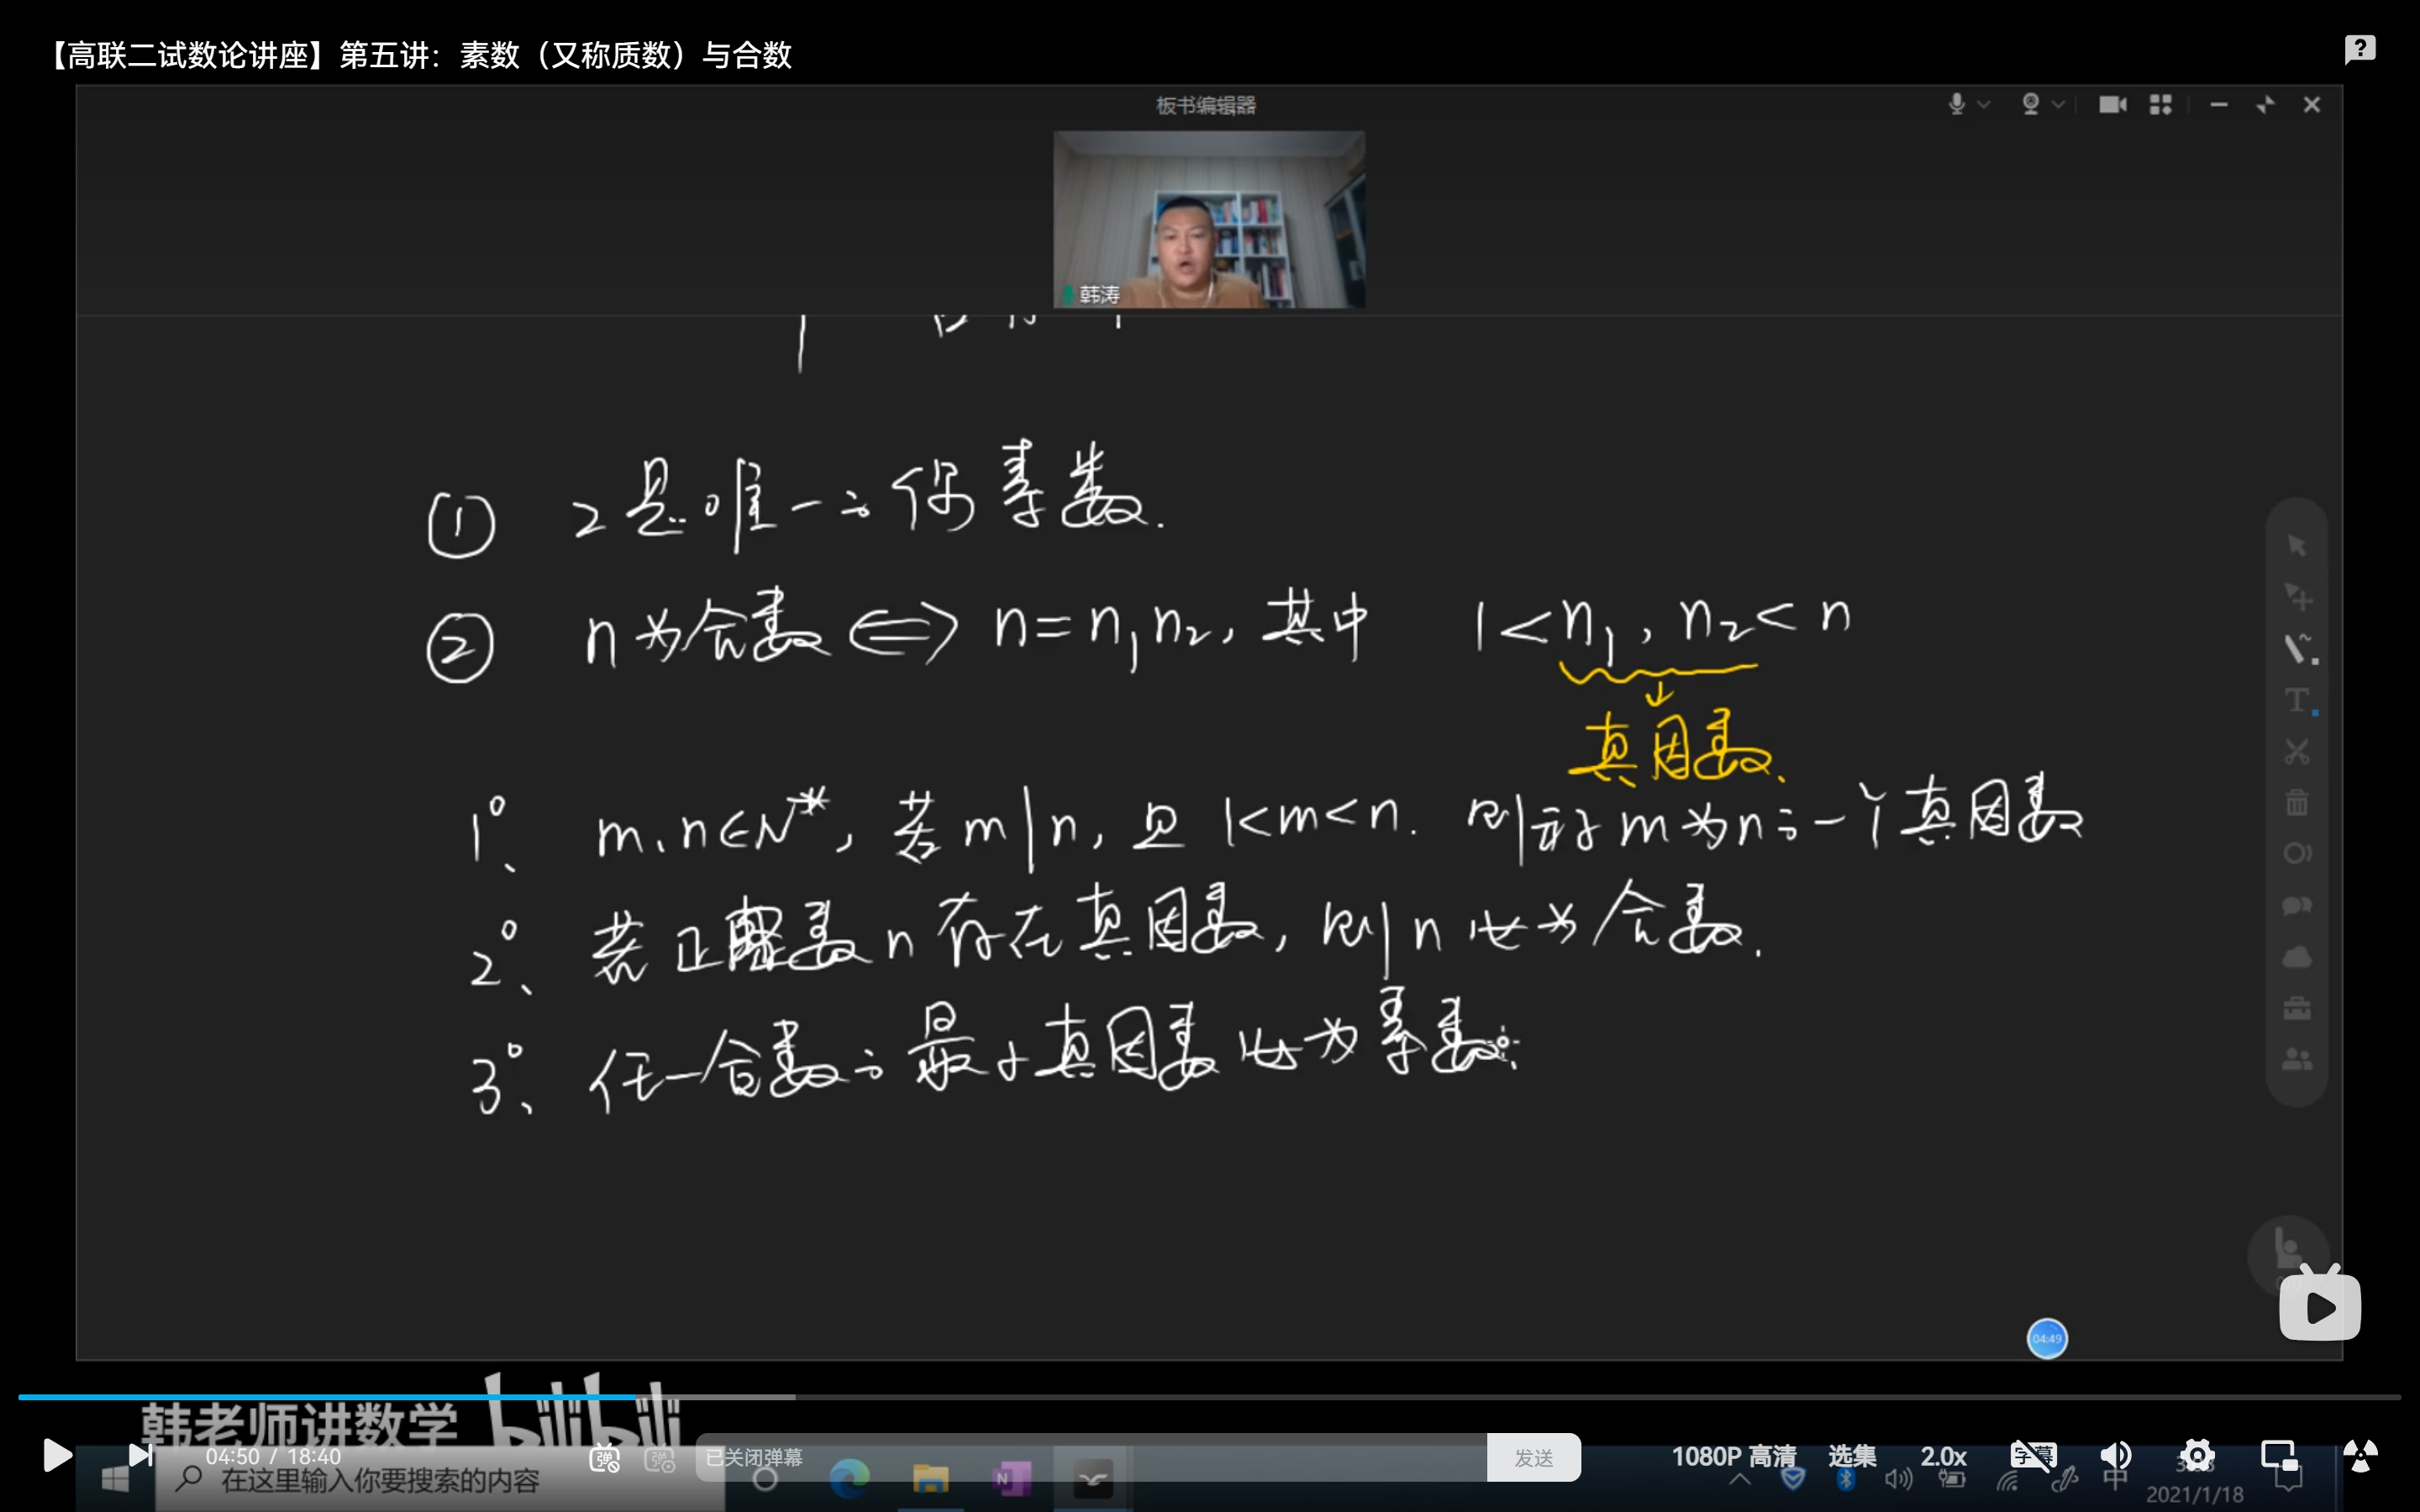 【高联二试数论讲座】第五讲：素数（又称质数）与合数
板书编辑器
韩涛
① 2是唯一的偶素数.
② n为合数⟺n=n₁n₂, 其中 1<n₁, n₂<n
真因数.
1°、 m、n∈N*, 若m|n, 且1<m<n. 则称m为n的一个真因数
2°、 若正整数n存在真因数, 则n必为合数.
3°、 任一合数的最小真因数必为素数.
04:49
韩老师讲数学 bilibili
04:50 / 18:40
已关闭弹幕
发送
1080P 高清 选集 2.0x
在这里输入你要搜索的内容
中
2021/1/18